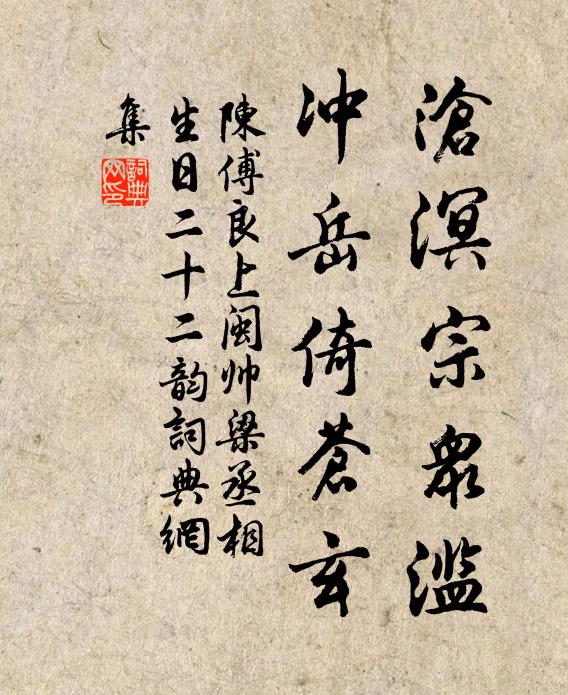 滄溟宗衆滥
冲岳倚蒼玄
陳傅良上閩帅梁丞相
生日二十二韵詞典網
集
詞典
网印